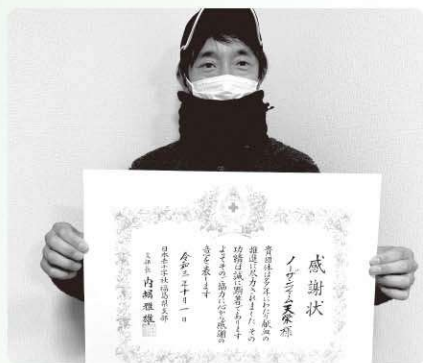 感謝状
ノーザンファーム天栄 様
貴団体は多年にわたり献血の
推進に尽力されました その
功績は誠に顕著であります
よってそのご協力に心から感謝の
意を表します
令和三年十月一日
日本赤十字社福島県支部
支部長 内堀雅雄